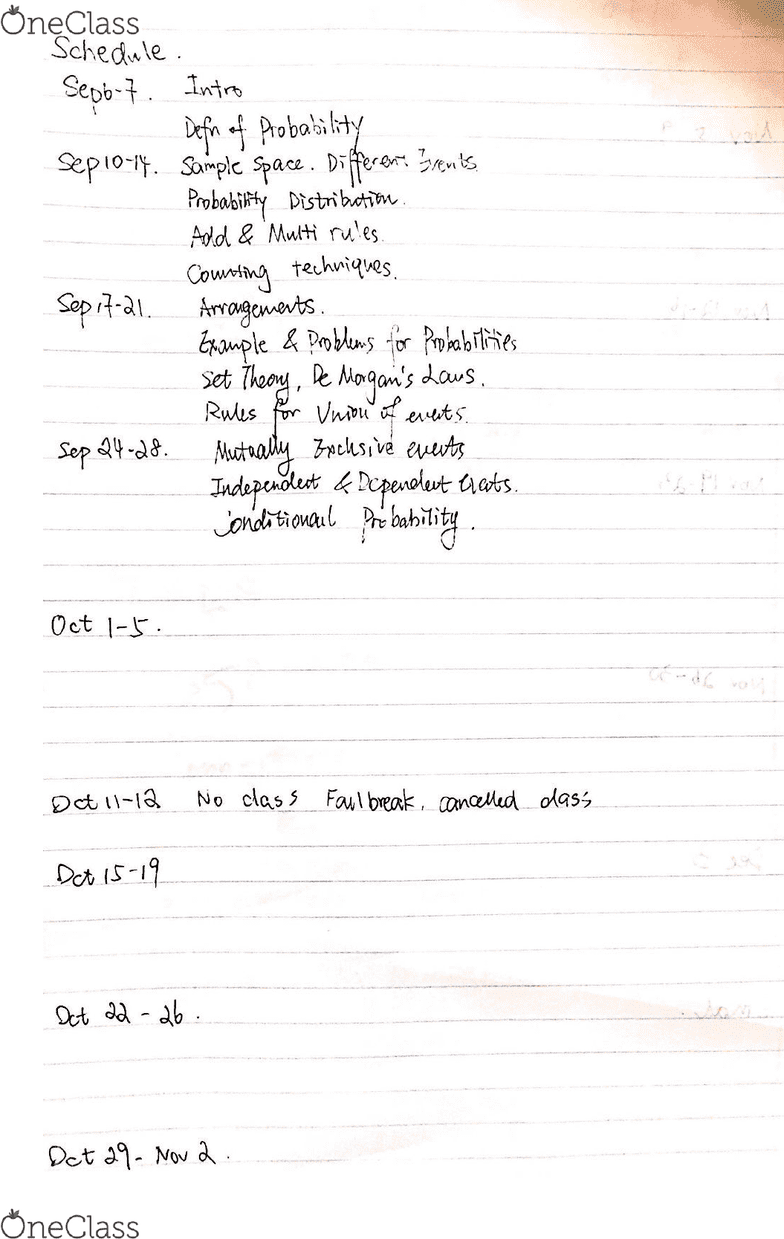 OneClass
Schedule.
Sep6-7. Intro
Defn of Probability
Sep10-14. Sample Space. Different Events.
Probability Distribution.
Add & Multi rules.
Counting techniques.
Sep17-21. Arrangements.
Example & Problems for Probabilities
Set Theory, De Morgan's Laws.
Rules for Union of events.
Sep 24-28. Mutually Exclusive events
Independent & Dependent Events.
Conditionail Probability.
Oct 1-5.
Oct 11-12 No class Faulbreak. cancelled class
Oct 15-19
Oct 22-26.
Oct 29- Nov 2.
OneClass